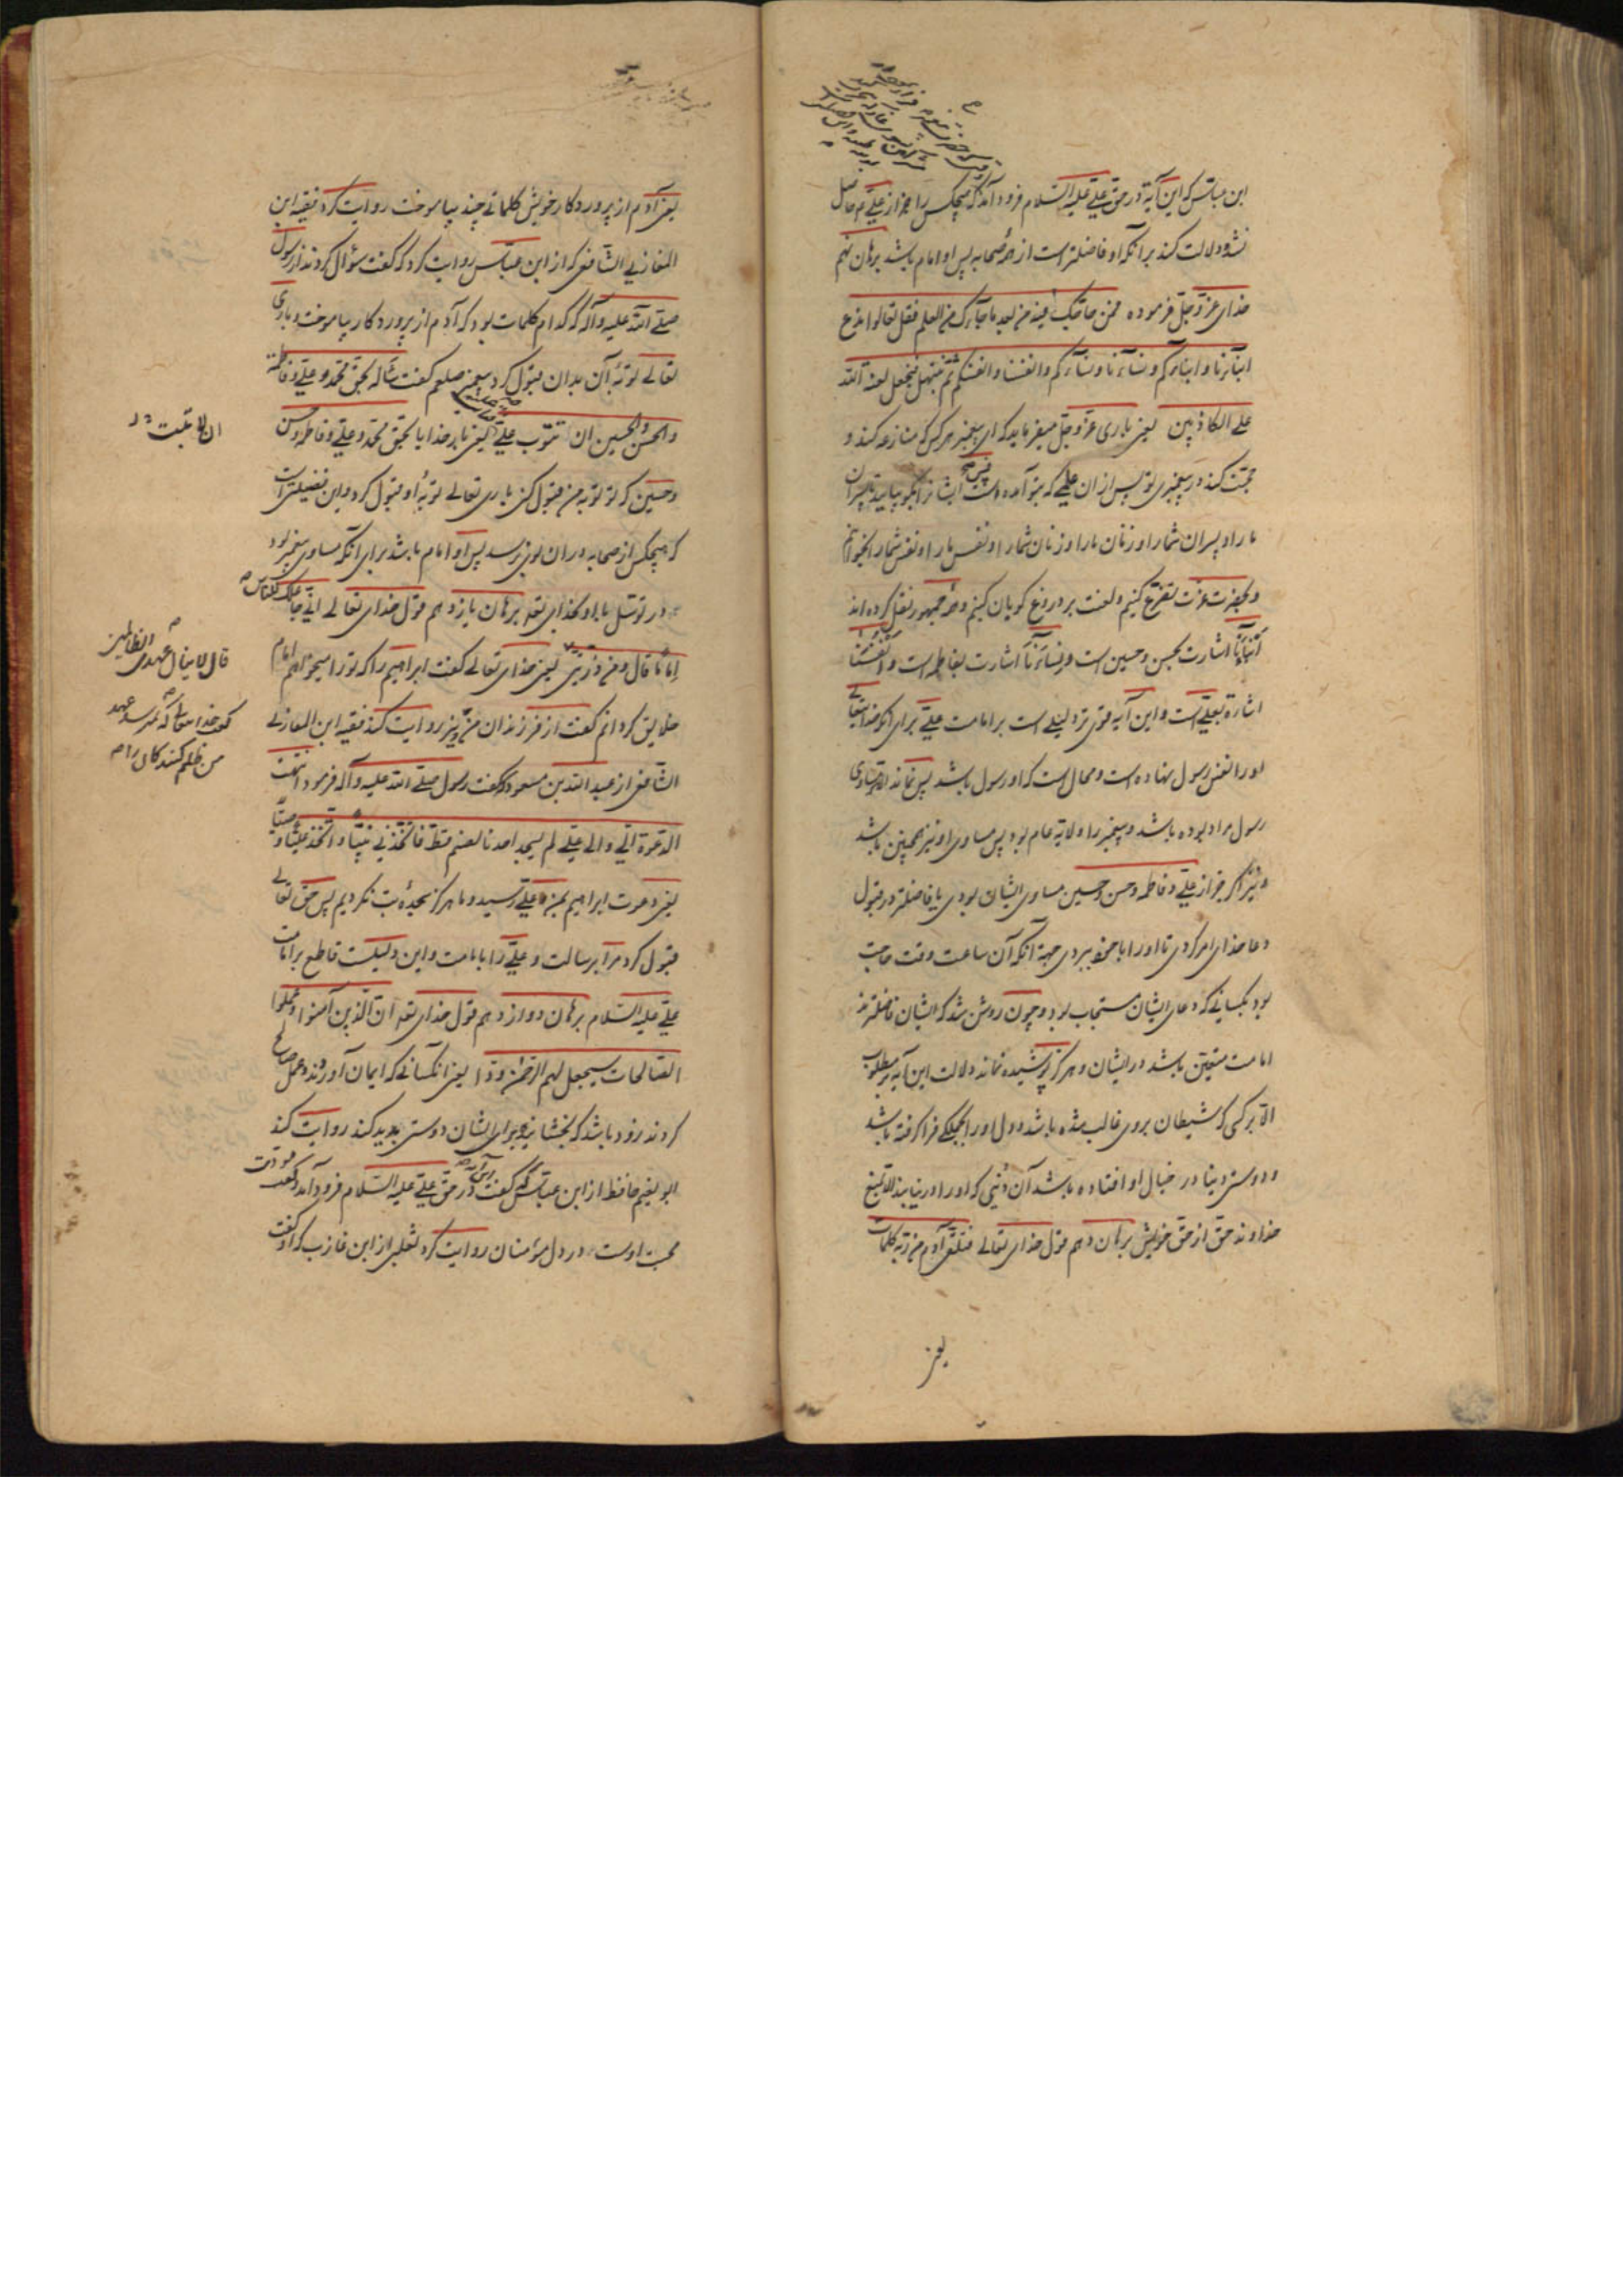 ابن عباس که این آیة در حق علی علیه السلام فرود آمد که هیچکس را بجز از علی ع حاصل
نشود دلالت کند بر آنکه او فاضلتر است از همۀ صحابه پس او امام باشد برهان نهم
خدای عز و جل فرموده فمن حاجک فیه من بعد ما جآءک من العلم فقل تعالوا ندع
ابنآءنا و ابناءکم و نسآءنا و نسآءکم و انفسنا و انفسکم ثم نبتهل فنجعل لعنة الله
علی الکاذبین یعنی باری عز و جل میفرماید که ای پیغمبر هر کس که منازعه کند و
حجت کند در پیغمبری تو پس از آن علمی که بتو آمده است پس ایشانرا بگو بیایید تا پسران
ما را و پسران شما را و زنان ما را و زنان شما را و نفس ما را و نفس شما را بخوانیم
و بحضرت عزت تضرع کنیم و لعنت بر دروغ گویان کنیم و همۀ جمهور نقل کرده اند
ابنآءنا اشارت بحسن و حسین است و نسآءنا اشارت بفاطمه است و انفسنا
اشارة بعلی است و این آیه قوی تر دلیلی است بر امامت علی برای آنکه خدایتعالی
او را نفس رسول نهاده است و محال است که او رسول باشد پس نماند الا تساوی
رسول مراد بوده باشد و پیغمبر را ولایة عام بود پس مساوی او نیز همچنین باشد
و نیز اگر جز از علی و فاطمه و حسن و حسین مساوی ایشان بودی یا فاضلتر در قبول
دعا خدای امر کردی تا او را با خود ببردی جهة آنکه آن ساعت وقت حاجت
بود بکسانی که دعای ایشان مستجاب بود و چون روشن شد که ایشان فاضلترند
امامت متعین باشد در ایشان و هرگز پوشیده نماند دلالت این آیه بر مطلوب
الا بر کسی که شیطان بروی غالب شده باشد و دل او را بجملگی فرا گرفته باشد
و دوستی دنیا در خیال او افتاده باشد آن دنیی که او را در نیابد الا بمنع
خداوند حق از حق خویش برهان دهم قول خدای تعالی فتلقی آدم من ربه کلمات
یعنی
یعنی آدم از پروردکار خویش کلماتی چند بیاموخت روایت کرد فقیه ابن
المغازلی الشافعی که از ابن عباس روایت کرد که گفت سؤال کردند از رسول
صلی الله علیه و آله که کدام کلمات بود که آدم از پروردکار بیاموخت و باری
تعالی توبۀ آن بدان قبول کرد پیغمبر صلعم گفت سأله بحق محمد و علی و فاطمة
و الحسن و الحسین ان تتوب علی یعنی بار خدایا بحق محمد و علی و فاطمه و حسن
و حسین که تو توبه من قبول کن باری تعالی توبۀ او قبول کرد و این فضیلتی است
که هیچکس از صحابه در آن بوی نرسد پس او امام باشد برای آنکه مساوی پیغمبر بود
در توسل باو بخدای تعه برهان یازدهم قول خدای تعالی انی جاعلک للناس
اماما قال و من ذریتی یعنی خدای تعالی گفت ابراهیم را که تو را میخواهم امام
خلایق کردانم گفت از فرزندان من نیز روایت کند فقیه ابن المغازلی
الشافعی از عبد الله بن مسعود که گفت رسول صلی الله علیه و آله فرمود انتهت
الدعوة الی و الی علی لم یسجد احدنا لصنم قط فاتخذنی نبیا و اتخذ علیا وصیا
یعنی دعوت ابراهیم بمن و علی رسید و ما هرگز سجدۀ بت نکردیم پس حق تعالی
قبول کرد مرا برسالت و علی را بامامت و این دلیلیست قاطع بر امامت
علی علیه السلام برهان دوازدهم قول خدای تعه ان الذین آمنوا و عملوا
الصالحات سیجعل لهم الرحمن ودا یعنی آنکسانی که ایمان آوردند و عمل صالح
کردند زود باشد که بخشاینده برای ایشان دوستی پدید کند روایت کند
ابو نعیم حافظ از ابن عباس که گفت این آیه در حق علی علیه السلام فرود آمد و گفت مودت
محبت اوست در دل مؤمنان روایت کرد ثعلبی از ابن عازب که او گفت
ان لا تبت
قال لا ینال عهدی الظالمین
گفت خدا تعالی که نمیرسد عهد
من ظلم کنندکان را